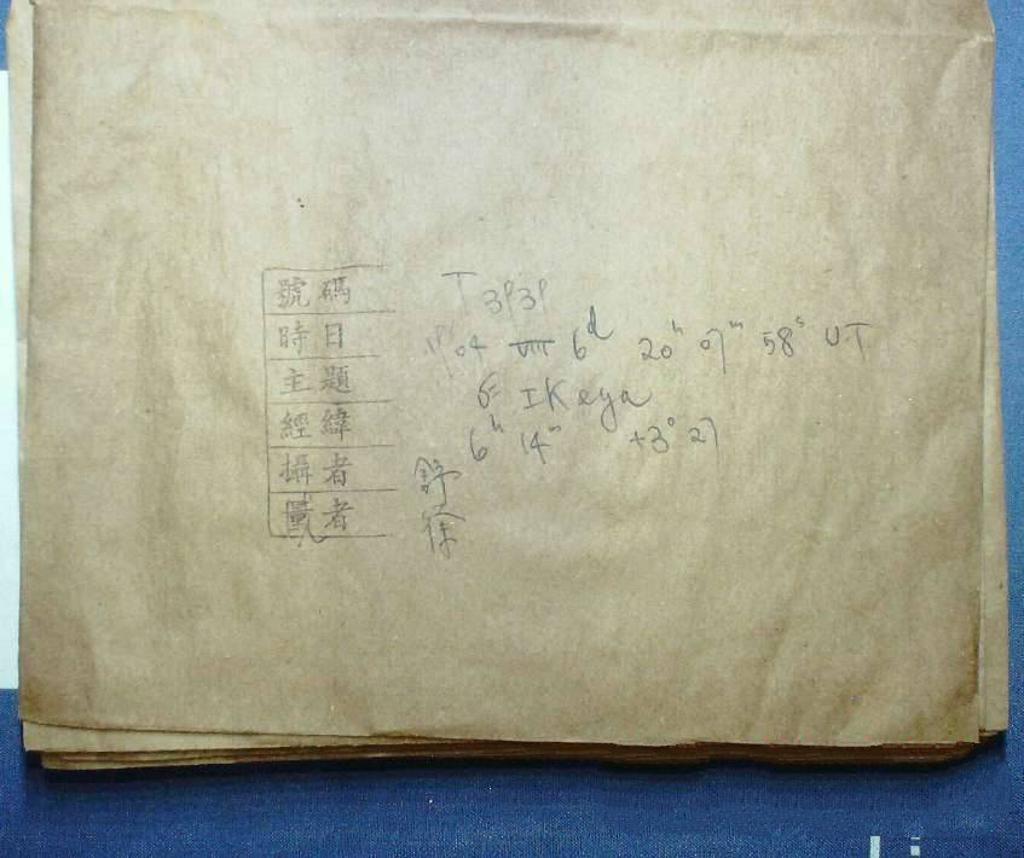 號碼 T 3939
時日 1964 VIII 6d 20h 07m 58s UT
主題 IKeya
經緯 6h 14m +3° 27
攝者 舒
量者 徐